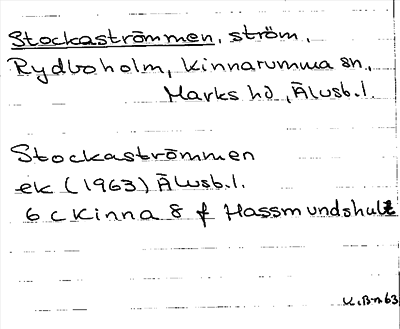 Stockaströmmen, ström,
Rydboholm, Kinnarumma sn.,
Marks hd, Älvsb.l.
Stockaströmmen
ek (1963) Älvsb.l.
6 c Kinna 8 f Hassmundshult
K.B-n 63